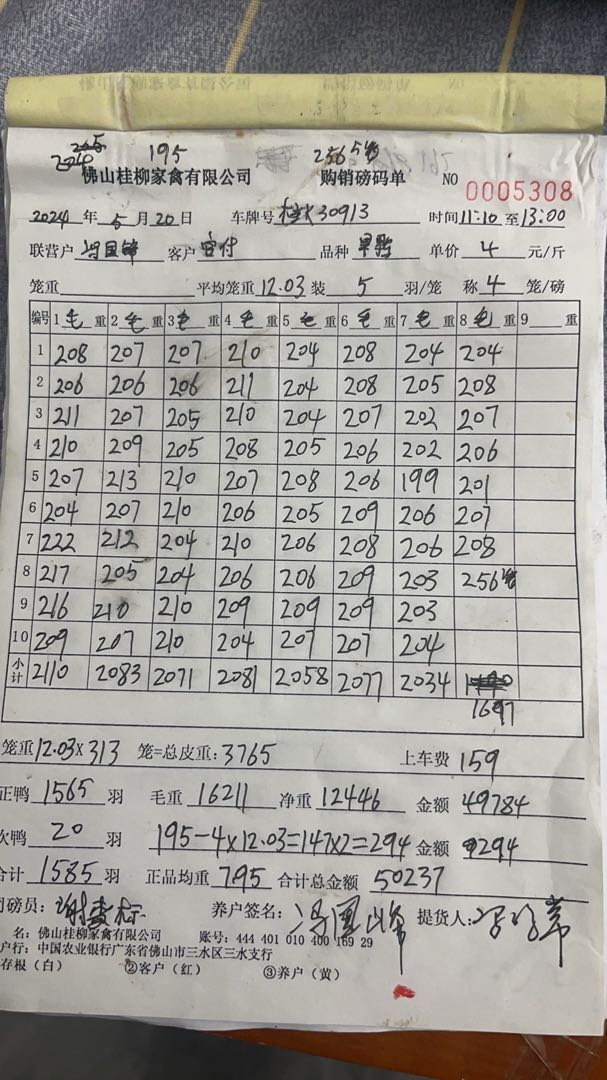 195 2565
佛山桂柳家禽有限公司 购销磅码单 NO 0005308
2024 年 5 月 20 日 车牌号 桂K30913 时间 11:10 至 13:00
联营户 冯国锋 客户 品种 单价 4 元/斤
笼重 平均笼重 12.03 装 5 羽/笼 称 4 笼/磅
编号 1 毛 重 2 毛 重 3 毛 重 4 毛 重 5 毛 重 6 毛 重 7 毛 重 8 毛 重 9 重
1 208 207 207 210 204 208 204 204
2 206 206 206 211 204 208 205 208
3 211 207 205 210 204 207 202 207
4 210 209 205 208 205 206 202 206
5 207 213 210 207 208 206 199 201
6 204 207 210 206 205 209 206 207
7 222 212 204 210 206 208 206 208
8 217 205 204 206 206 209 203 256
9 216 210 210 209 209 209 203
10 209 207 210 204 207 207 204
小计 2110 2083 2071 2081 2058 2077 2034
1697
笼重 12.03 X 313 笼=总皮重: 3765 上车费 159
正鸭 1565 羽 毛重 16211 净重 12446 金额 49784
次鸭 20 羽 195-4x12.03=147x2=294 金额 294
合计 1585 羽 正品均重 7.95 合计总金额 50237
司磅员: 养户签名: 冯国峰 提货人:
名: 佛山桂柳家禽有限公司 账号: 444 401 010 400 169 29
户行: 中国农业银行广东省佛山市三水区三水支行
存根(白) ②客户(红) ③养户(黄)